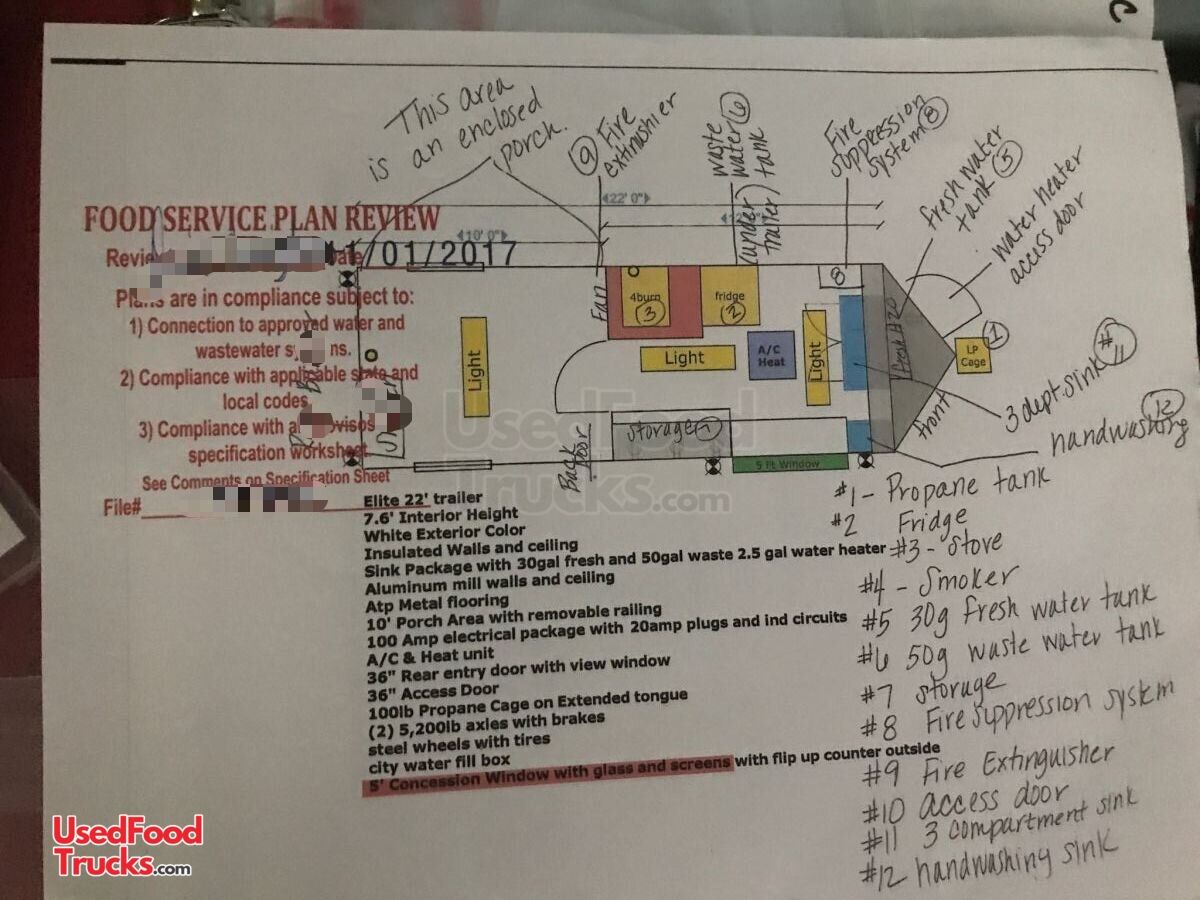 This area
is an enclosed
porch.
9 Fire
extinushier
waste
water 6
tank
(under
trailer)
Fire
Suppression
System 8
fresh water
tank 5
water heater
access door
22' 0"
10' 0"
FOOD SERVICE PLAN REVIEW
11/01/2017
Plans are in compliance subject to:
1) Connection to approved water and
wastewater s ns.
2) Compliance with applicable state and
local codes
3) Compliance with a rovisos
specification worksheet
See Comments on Specification Sheet
File#
Fan
4burn
3
fridge
2
8
Light
Light
A/C
Heat
Light
Fresh H20
LP
Cage
1
front
#11
3 dept. sink
12
handwashing
Storage 7
Back
door
5 Ft Window
UsedFood
Trucks.com
Elite 22' trailer
7.6' Interior Height
White Exterior Color
Insulated Walls and ceiling
Sink Package with 30gal fresh and 50gal waste 2.5 gal water heater
Aluminum mill walls and ceiling
Atp Metal flooring
10' Porch Area with removable railing
100 Amp electrical package with 20amp plugs and ind circuits
A/C & Heat unit
36" Rear entry door with view window
36" Access Door
100lb Propane Cage on Extended tongue
(2) 5,200lb axles with brakes
steel wheels with tires
city water fill box
5' Concession Window with glass and screens with flip up counter outside
#1 - Propane tank
#2 Fridge
#3 - Stove
#4 - Smoker
#5 30g fresh water tank
#6 50g waste water tank
#7 storage
#8 Fire Suppression system
#9 Fire Extinguisher
#10 access door
#11 3 compartment sink
#12 handwashing sink
UsedFood
Trucks.com